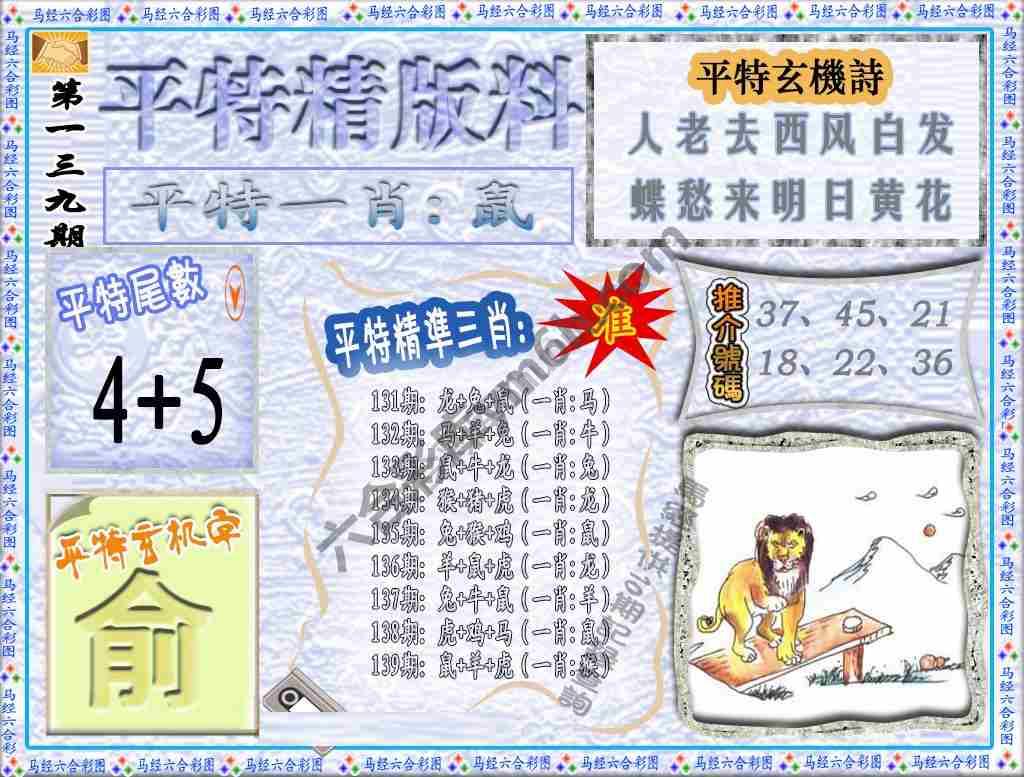 马经六合彩图 马经六合彩图 马经六合彩图 马经六合彩图 马经六合彩图 马经六合彩图 马经六合彩图 马经六合彩图 马经六合彩图
第一三九期
平特精版料
平特一肖：鼠
平特玄機詩
人老去西风白发
蝶愁来明日黄花
平特尾數
4+5
平特精準三肖：
准
131期：龙+兔+鼠（一肖：马）
132期：马+羊+兔（一肖：牛）
133期：鼠+牛+龙（一肖：兔）
134期：猴+猪+虎（一肖：龙）
135期：兔+猴+鸡（一肖：鼠）
136期：羊+鼠+虎（一肖：龙）
137期：兔+牛+鼠（一肖：羊）
138期：虎+鸡+马（一肖：鼠）
139期：鼠+羊+虎（一肖：猴）
推介號碼
37、45、21
18、22、36
平特玄机字
俞
马经六合彩图 马经六合彩图 马经六合彩图 马经六合彩图 马经六合彩图 马经六合彩图 马经六合彩图 马经六合彩图 马经六合彩图